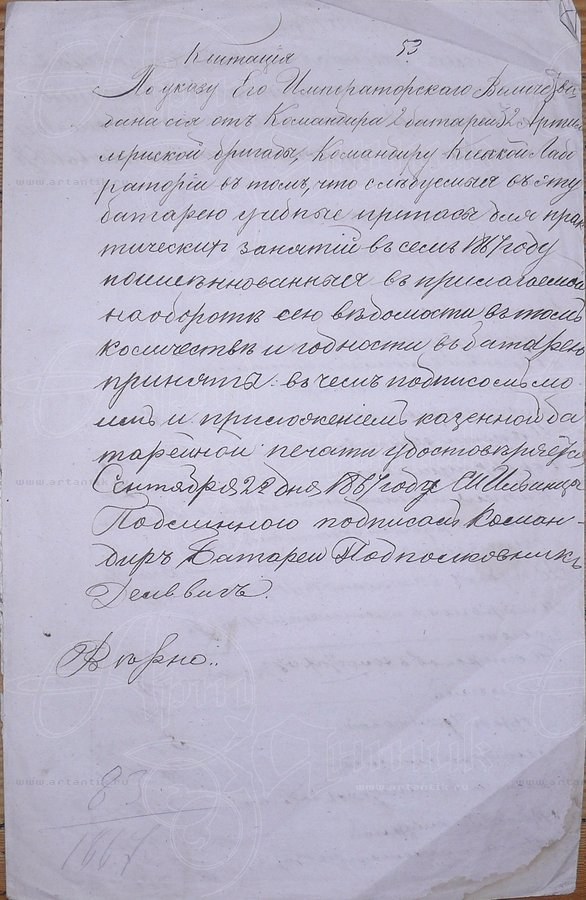 Квитанція 53.
По указу Его Императорскаго Величества
дана сія отъ Командира 2 батареи 32 Арти
лерійской бригады, Командиру Кіевской Лаб
раторіи въ томъ, что слѣдуемыя въ эту
батарею учебные припасы для прак
тическихъ занятій въ семъ 1867 году
поимѣннованныя въ прилагаемой
на оборотѣ сею вѣдомости въ томъ
количествѣ и годности въ батарею
приняты: въ чемъ подписомъ мо
имъ и приложеніемъ казенной ба
тарейной печати удостовѣряется
Сентября дня 1867 году
Подлинного подписалъ Коман-
диръ Батареи Подполковникъ
Делввигъ.
Вѣрно:.
83
1867
www.artantik.ru